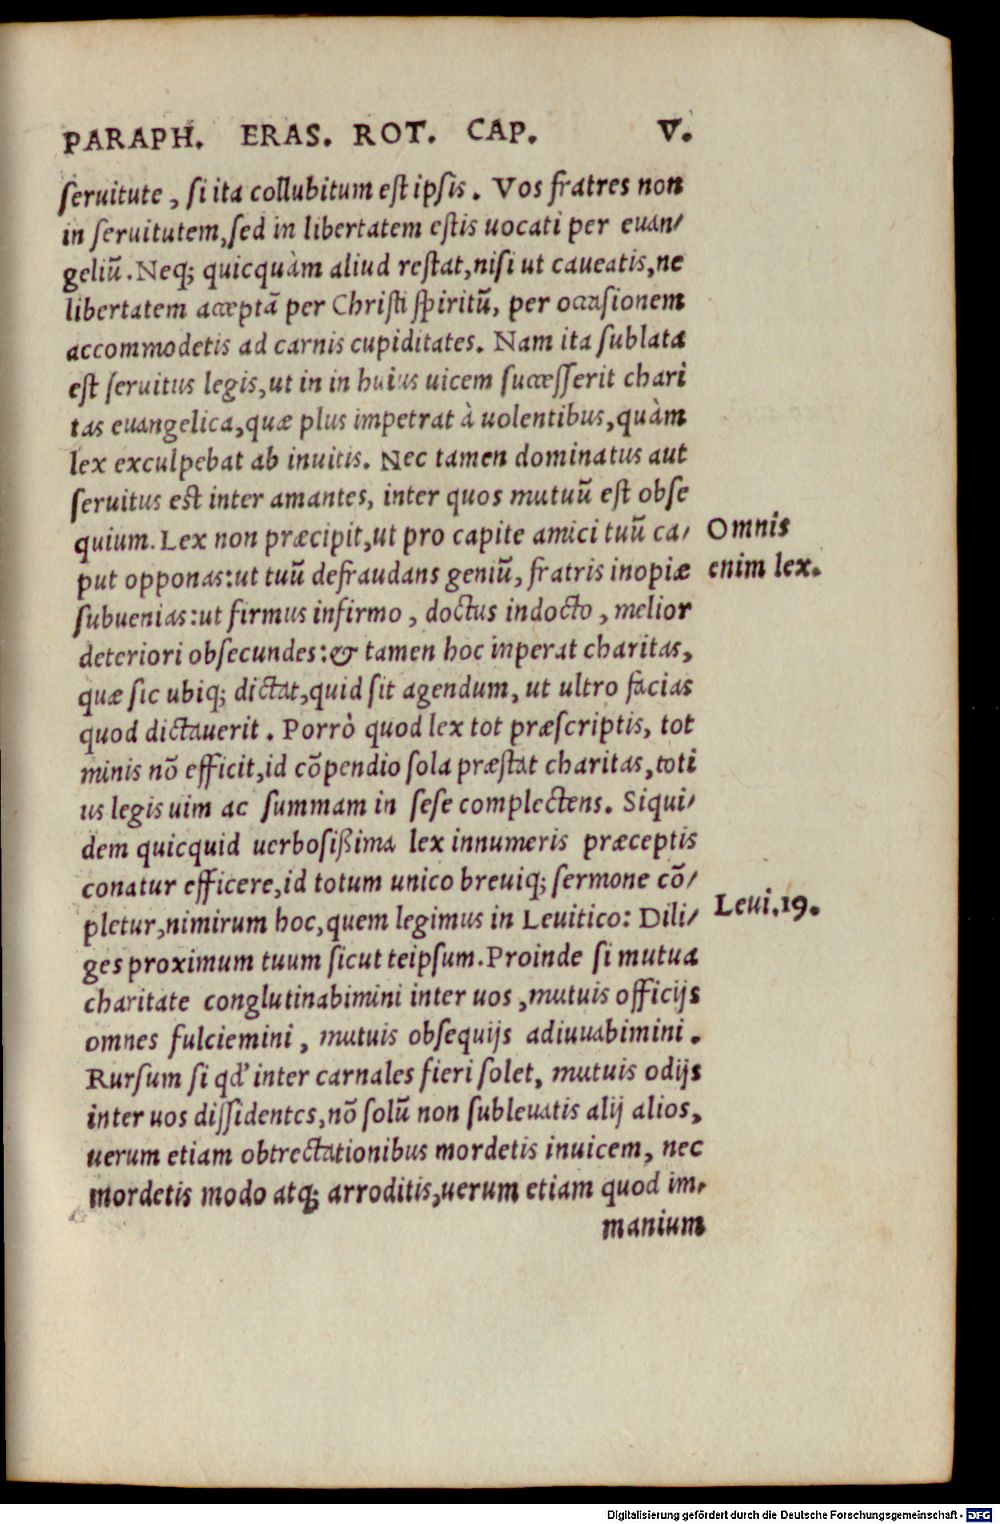 PARAPH. ERAS. ROT. CAP. V.
seruitute, si ita collubitum est ipsis. Vos fratres non
in seruitutem, sed in libertatem estis uocati per euan/
geliũ. Neq; quicquàm aliud restat, nisi ut caueatis, ne
libertatem acceptã per Christi spiritũ, per occasionem
accommodetis ad carnis cupiditates. Nam ita sublata
est seruitus legis, ut in in huius uicem successerit chari
tas euangelica, quæ plus impetrat à uolentibus, quàm
lex exculpebat ab inuitis. Nec tamen dominatus aut
seruitus est inter amantes, inter quos mutuũ est obse
quium. Lex non præcipit, ut pro capite amici tuũ ca/
Omnis
put opponas: ut tuũ defraudans geniũ, fratris inopiæ
enim lex.
subuenias: ut firmus infirmo, doctus indocto, melior
deteriori obsecundes: & tamen hoc inperat charitas,
quæ sic ubiq; dictat, quid sit agendum, ut ultro facias
quod dictauerit. Porrò quod lex tot præscriptis, tot
minis nõ efficit, id cõpendio sola præstat charitas, toti
us legis uim ac summam in sese complectens. Siqui/
dem quicquid uerbosißima lex innumeris præceptis
conatur efficere, id totum unico breuiq; sermone cõ/
pletur, nimirum hoc, quem legimus in Leuitico: Dili/
Leui. 19.
ges proximum tuum sicut teipsum. Proinde si mutua
charitate conglutinabimini inter uos, mutuis officijs
omnes fulciemini, mutuis obsequijs adiuuabimini.
Rursum si qd' inter carnales fieri solet, mutuis odijs
inter uos dissidentes, nõ solũ non subleuatis alij alios,
uerum etiam obtrectationibus mordetis inuicem, nec
mordetis modo atq; arroditis, uerum etiam quod im/
manium
Digitalisierung gefördert durch die Deutsche Forschungsgemeinschaft - DFG